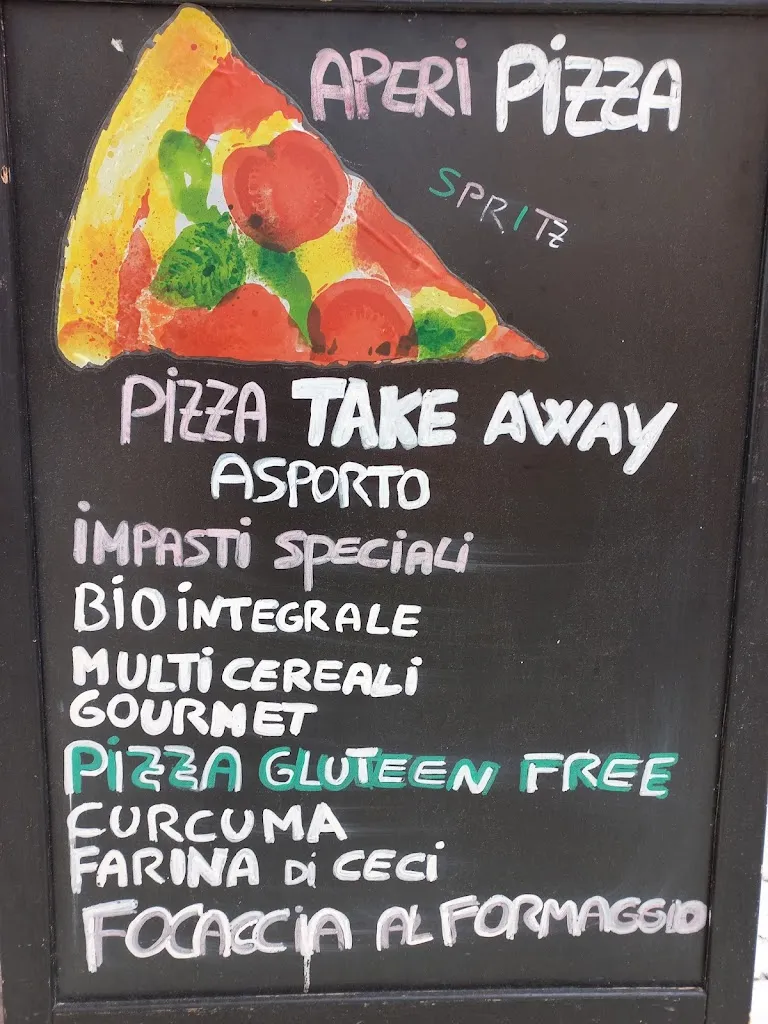 APERI PIZZA
SPRITZ
PIZZA TAKE AWAY
ASPORTO
IMPASTI SPECIALI
BIO INTEGRALE
MULTICEREALI
GOURMET
PIZZA GLUTEEN FREE
CURCUMA
FARINA Di CECI
FOCACCIA AL FORMAGGIO